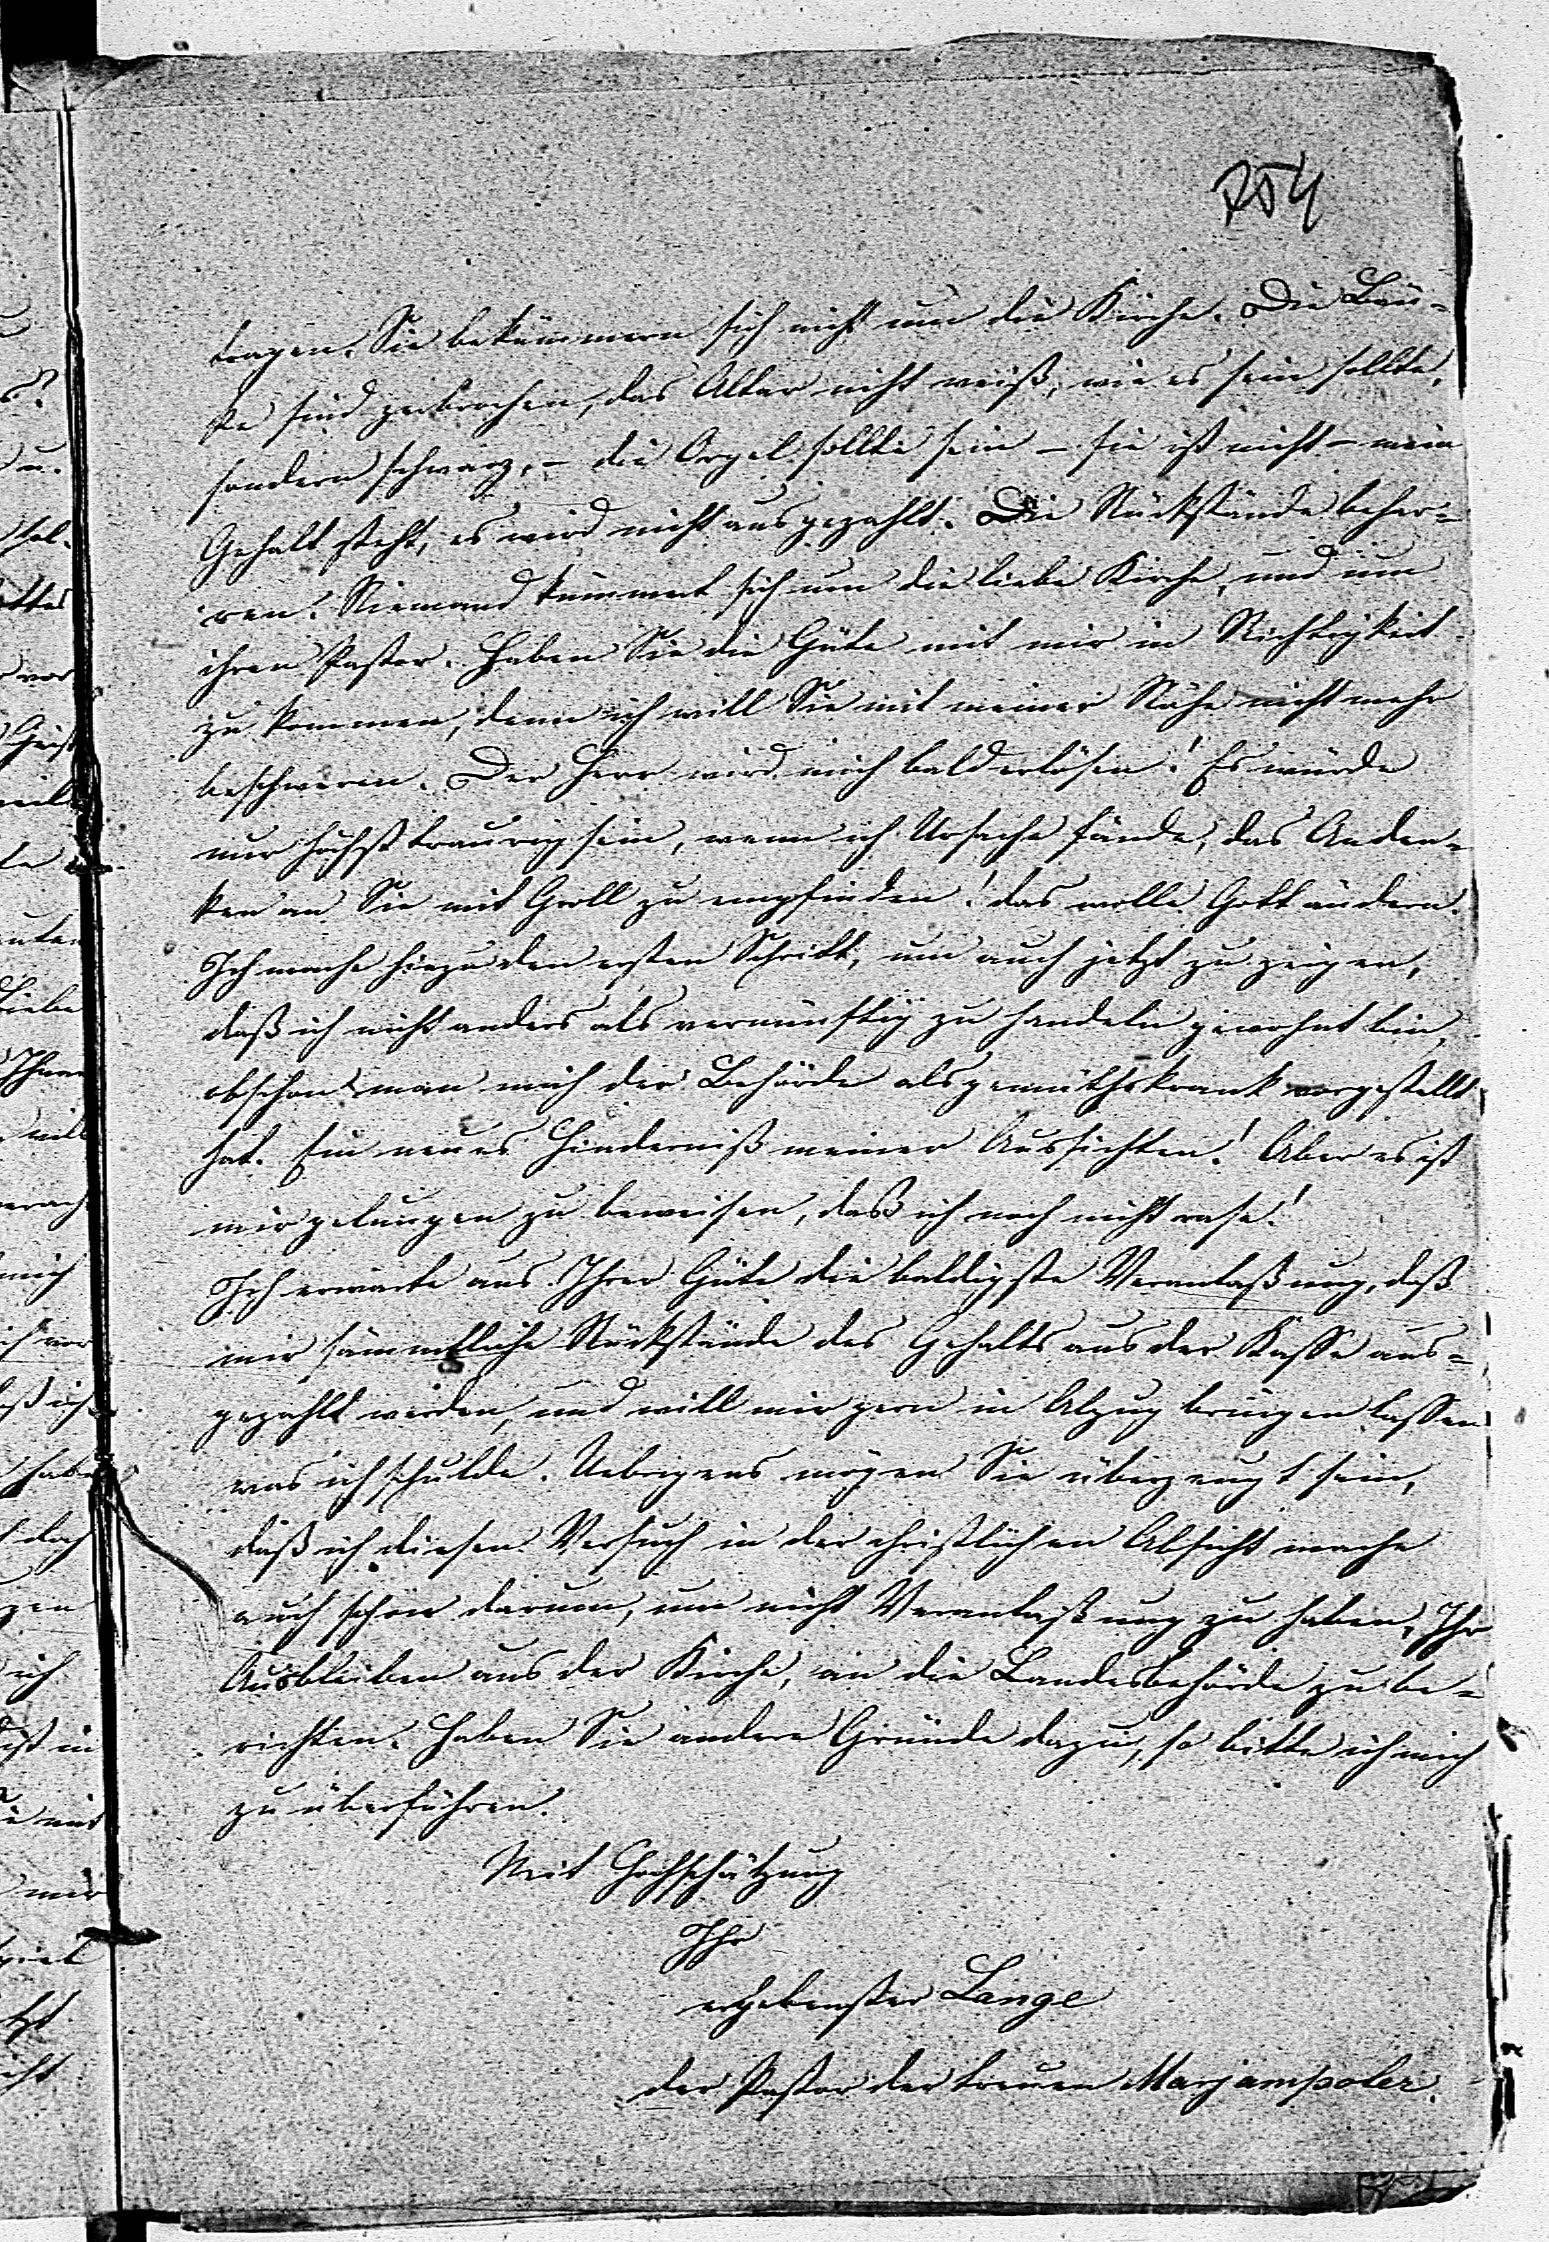 254
tragen. Sie bekümmern sich nicht um die Kirche. Die Bän-
ke sind zerbrochen, das Altar nicht weiß, wie es sein sollte,
sondern schwarz, – die Orgel sollte sein – sie ist nicht – mein
Gehalt steht, es wird nicht ausgezahlt. Die Rückstände behar-
ren. Niemand kümmert sich um die liebe Kirche, und um
ihren Pastor. Haben Sie die Güte mit mir in Richtigkeit
zu kommen, denn ich will Sie mit meiner Nähe nicht mehr
beschweren. Der Herr wird mich bald erlösen! Es würde
nur höchst traurig sein, wenn ich Ursache fände, das Anden-
ken an Sie mit Groll zu empfinden! das wolle Gott ändern.
Ich mache hiezu den ersten Schritt, um auch jetzt zu zeigen,
daß ich nicht anders als vernünftig zu handeln gewohnt bin,
obschon man mich der Behörde als gemüthskrank vorgestellt
hat. Ein neues Hinderniß meiner Aussichten! Aber es ist
mir gelungen zu beweisen, daß ich noch nicht rase!
Ich erwarte aus Ihrer Güte die baldigste Veranlaßung, daß
mir sämmtliche Rückstände des Gehalts aus der Kasse aus-
gezahlt werden, und will mir gern in Abzug bringen lassen
was ich schulde. Uebrigens mögen Sie überzeugt sein,
daß ich diesen Versuch in der christlichen Absicht mache
auch schon darum, um nicht Veranlaßung zu haben, Ihr
Ausbleiben aus der Kirche, an die Landesbehörde zu be-
richten. Haben Sie andere Gründe dazu, so bitte ich mich
zu überführen.
Mit Hochschätzung
Ihr
ergebenster Lange
der Pastor der treuen Marjampoler.